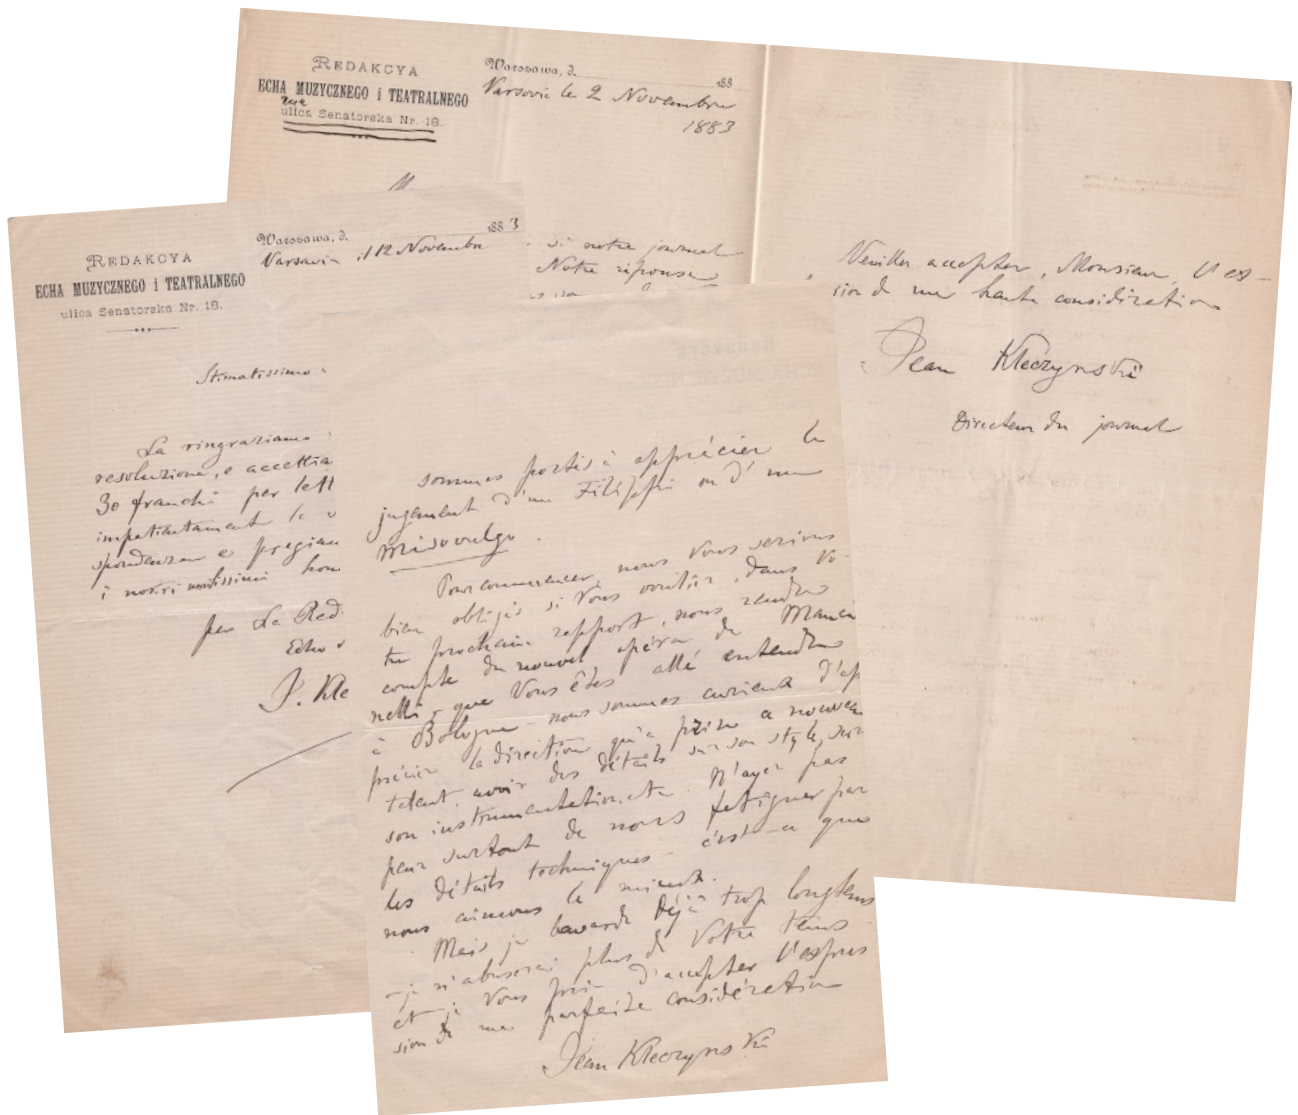 REDAKCYA
ECHA MUZYCZNEGO i TEATRALNEGO
rue
ulica Senatorska Nr. 18.
Warszawa, d. 188
Varsovie le 2 Novembre
1883
si notre journal
Notre réponse
Veuillez accepter, Monsieur, l'ex-
sion de ma haute considération
Jean Kleczyński
Directeur du journal
REDAKCYA
ECHA MUZYCZNEGO i TEATRALNEGO
ulica Senatorska Nr. 18.
Warszawa, d. 1883
Varsavia il 12 Novembre
Stimatissimo
La ringraziamo
resoluzione, e accettia
30 franchi per lett
impatientamente le
spondenza e pregian
i nostri nostissimi hom
per La Red
Echo
J. Kle
sommes portés à apprécier le
jugement d'un Filippi ou d'un
Misovulgo.
Pour commencer, nous Vous serions
bien obligés si Vous vouliez, dans Vo
tre prochain rapport, nous rendre
compte du nouvel opéra de Manci
nelli, que Vous êtes allé entendre
à Bologne – nous sommes curieux d'ap
précier la direction qu'a prise ce nouveau
talent, avoir des détails sur son style, sur
son instrumentation, etc. N'ayez pas
peur surtout de nous fatiguer par
les détails techniques – c'est ce que
nous aimons le mieux.
Mais je bavarde déjà trop longtems
– je n'abuserai plus de Votre tems –
et je Vous prie d'accepter l'expres
sion de ma parfaite considération
Jean Kleczyński